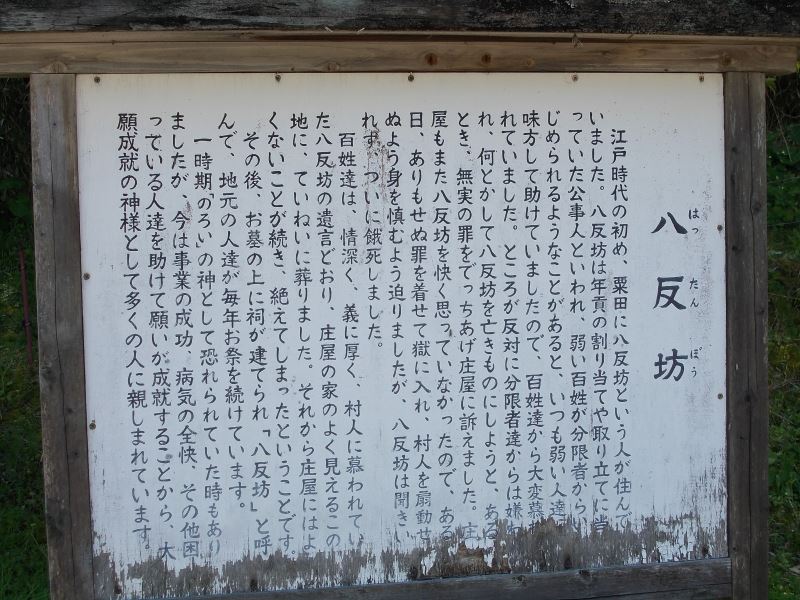 八反坊
はっ たん ぼう
江戸時代の初め、粟田に八反坊という人が住んで
いました。八反坊は年貢の割り当てや取り立てに当
っていた公事人といわれ、弱い百姓が分限者からい
じめられるようなことがあると、いつも弱い人達
味方して助けていましたので、百姓達から大変慕
れていました。ところが反対に分限者達からは嫌わ
れ、何とかして八反坊を亡きものにしようと、ある
とき、無実の罪をでっちあげ庄屋に訴えました。庄
屋もまた八反坊を快く思っていなかったので、ある
日、ありもせぬ罪を着せて獄に入れ、村人を扇動せ
ぬよう身を慎むよう迫りましたが、八反坊は聞きい
れず、ついに餓死しました。
百姓達は、情深く、義に厚く、村人に慕われてい
た八反坊の遺言どおり、庄屋の家のよく見えるこの
地に、ていねいに葬りました。それから庄屋にはよ
くないことが続き、絶えてしまったということです。
その後、お墓の上に祠が建てられ「八反坊」と呼
んで、地元の人達が毎年お祭を続けています。
一時期「のろいの神として恐れられていた時もあり
ましたが、今は事業の成功、病気の全快、その他困
っている人達を助けて願いが成就することから、大
願成就の神様として多くの人に親しまれています。